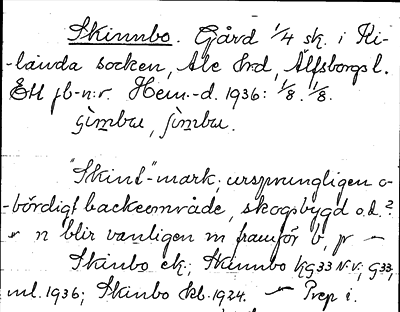 Skinnbo. Gård 1/4 sk. i Ki-
-landa socken, Ale hrd, Älfsborgs l.
Ett jb-n:r. Hem.-d. 1936: 1/8. 1/8.
"Skinn"-mark, ursprungligen o-
-bördigt backeområde, skogsbygd o.d.?
n blir vanligen m framför b, p —
Skinbo ek.; Skinnbo kg33 N.V.; G33,
ml. 1936; Skinbo Skb. 1924. — Prep i.